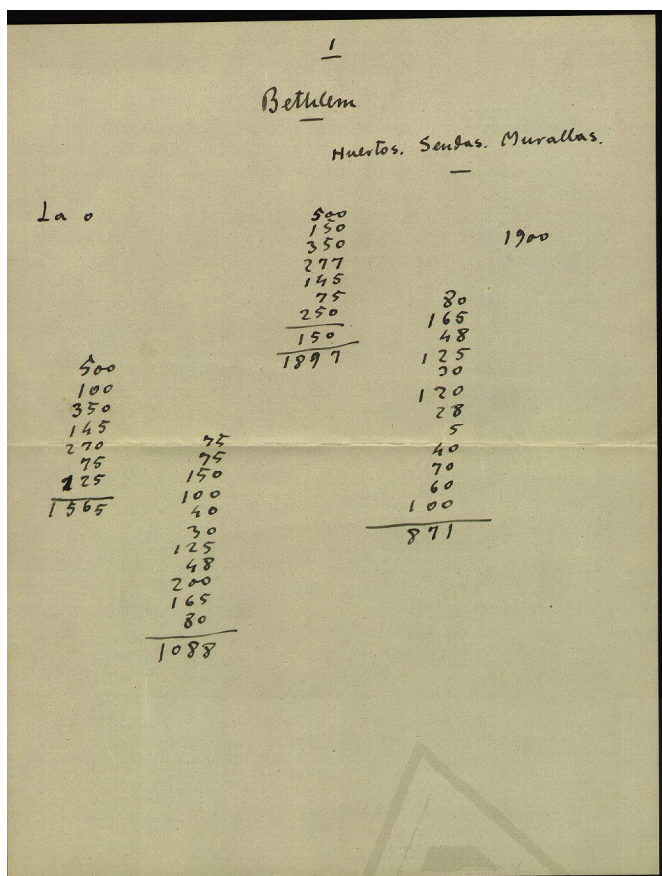 1
Bethlem
Huertos. Sendas. Murallas.
La o
1900
500
150
350
277
145
75
250
150
1897
80
165
48
125
30
120
28
5
40
70
60
100
871
500
100
350
145
270
75
125
1565
75
75
150
100
40
30
125
48
200
165
80
1088